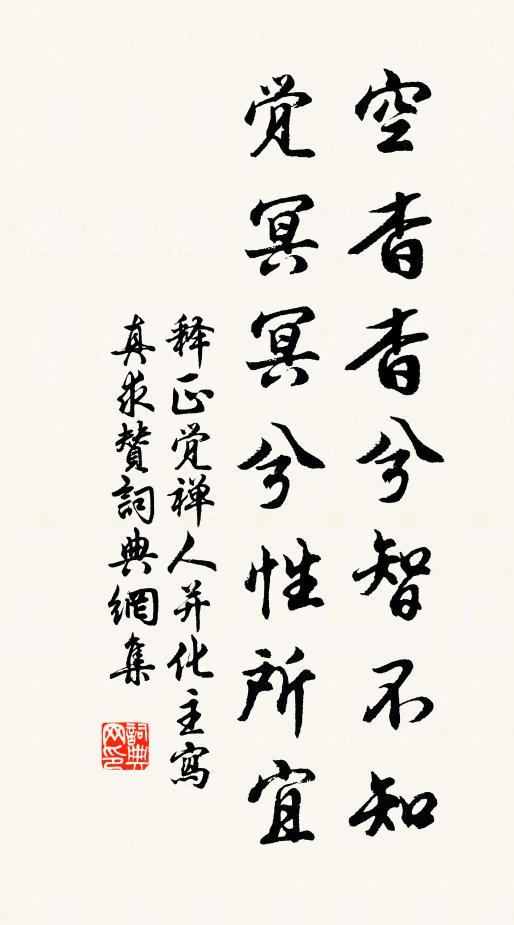 空杳杳兮智不知
觉冥冥兮性所宜
释正觉禅人并化主寫
真求赞詞典網集
詞典网印